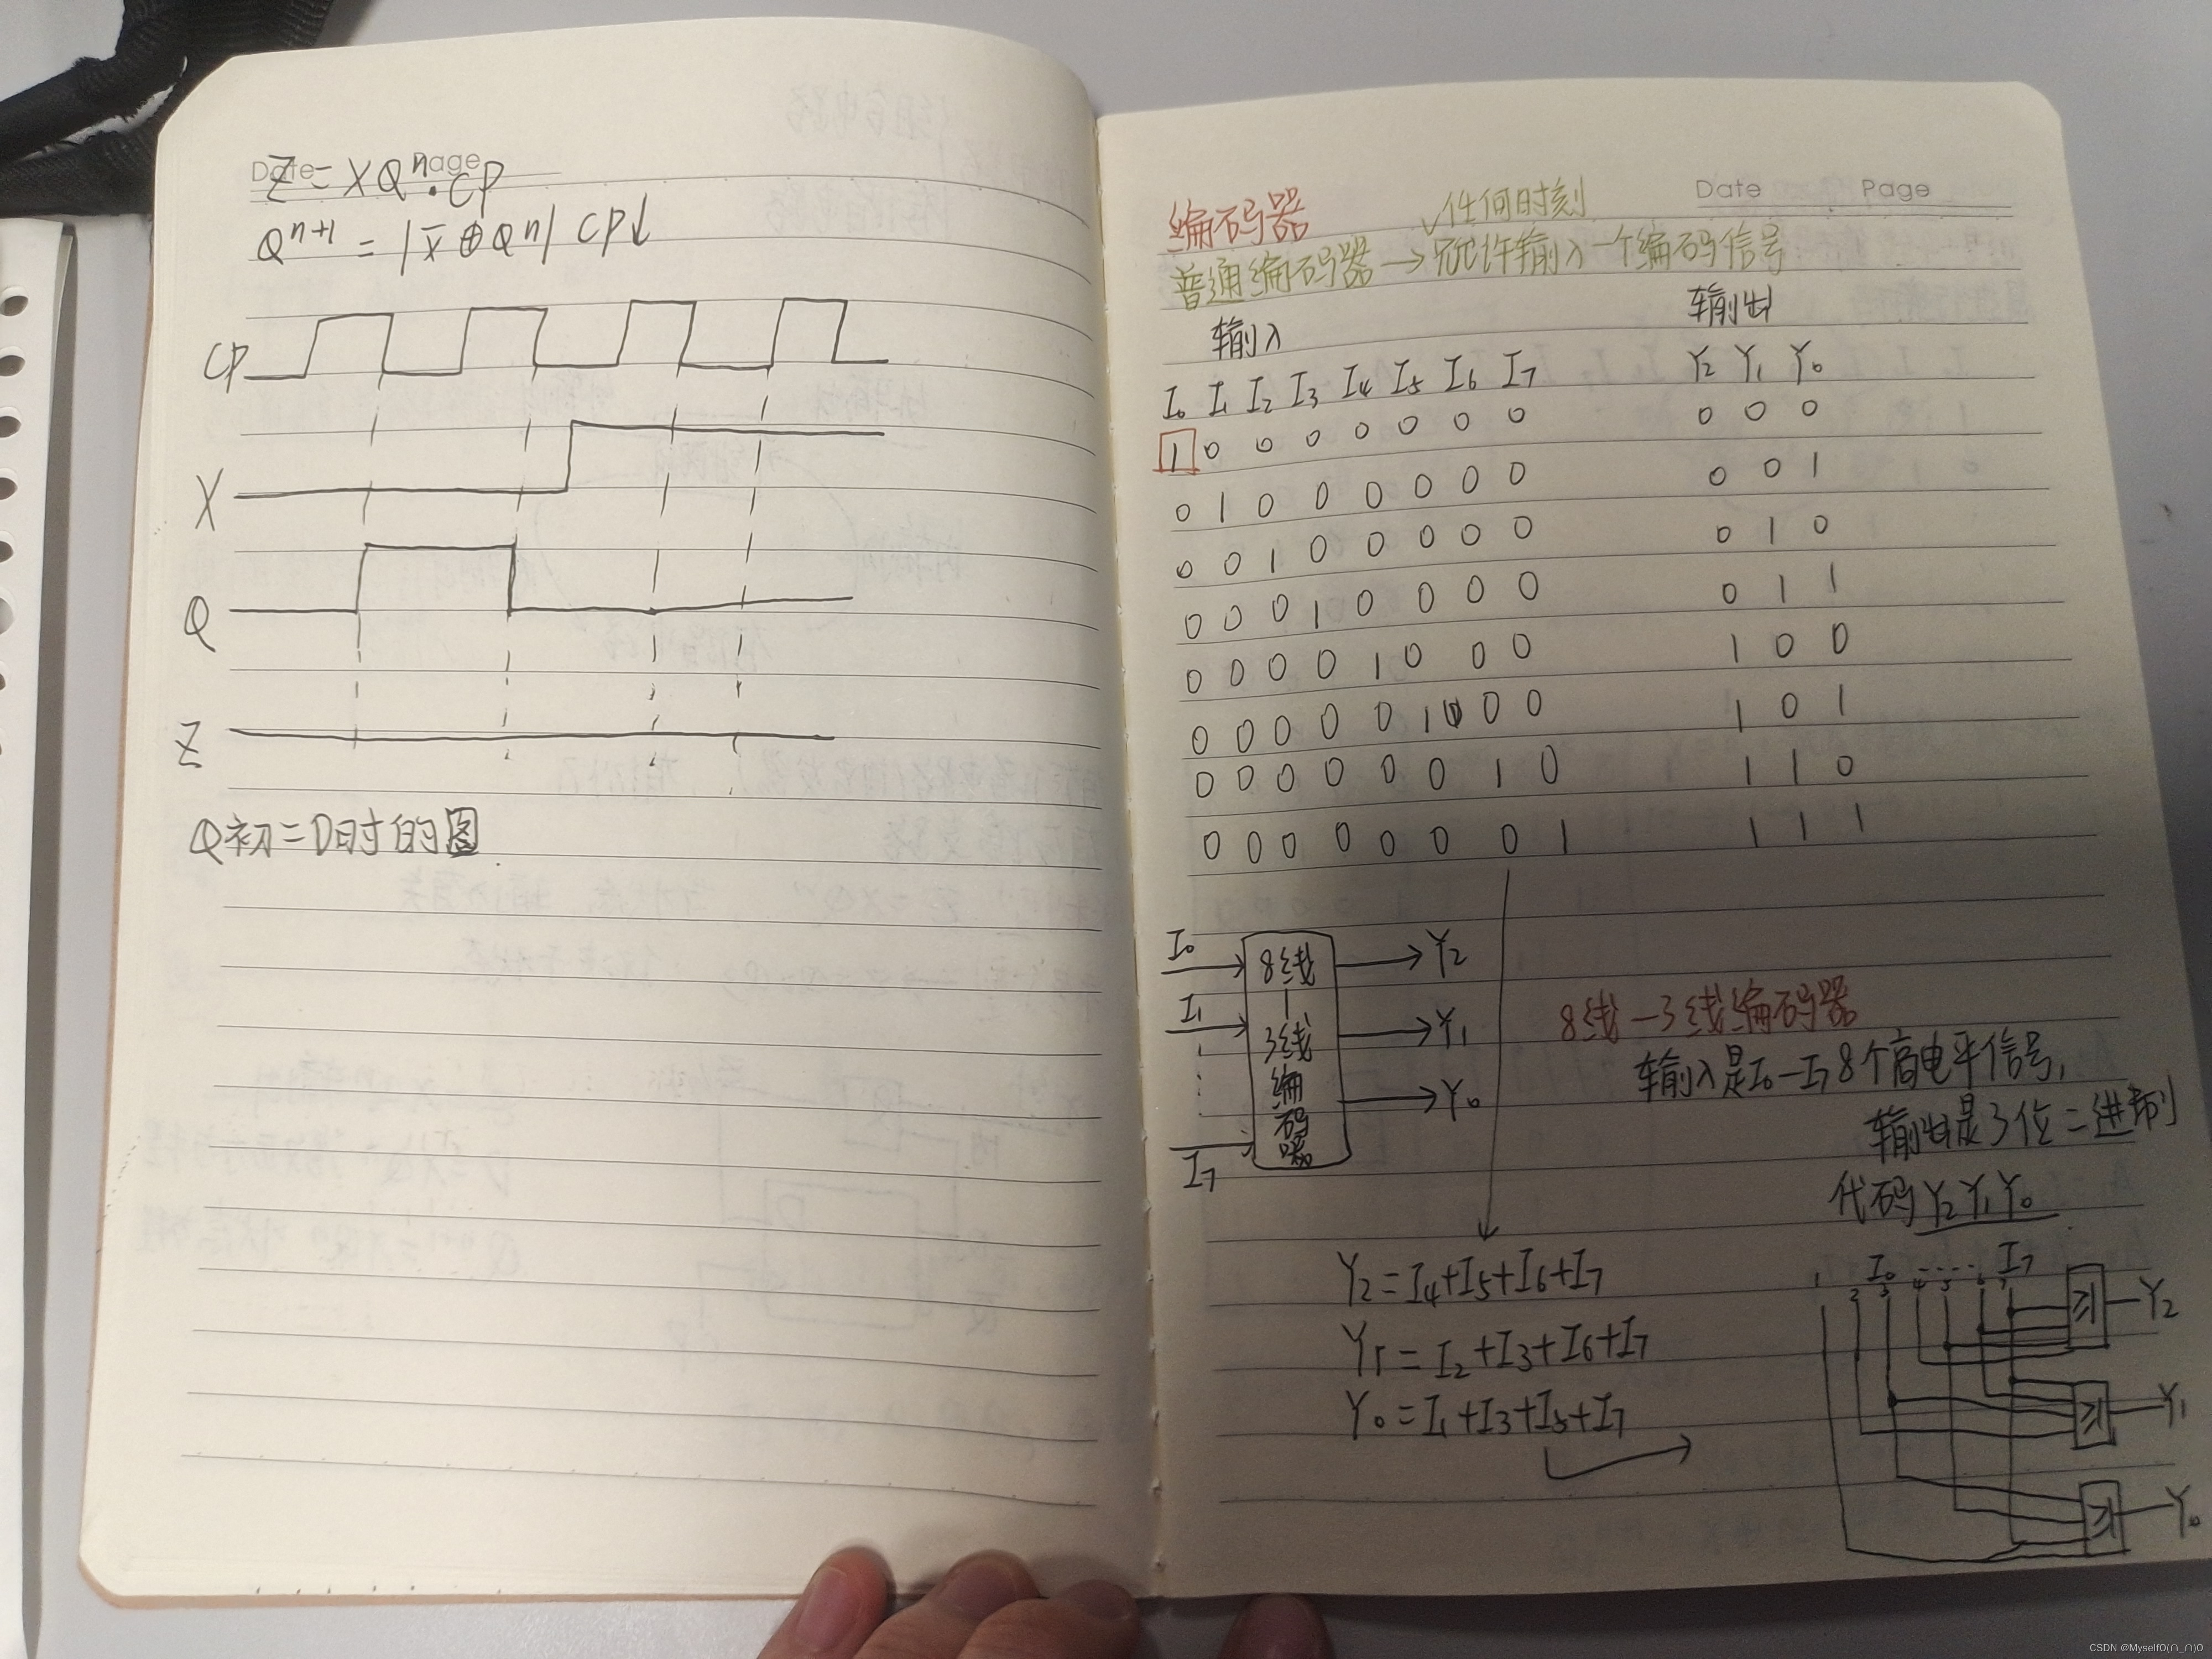 Date Page
Z = XQⁿ·CP
Qⁿ⁺¹ = |X̅⊕Qⁿ| CP↓
CP
X
Q
Z
Q初=0时的图
Date Page
编码器
任何时刻
普通编码器→允许输入一个编码信号
输入 输出
I₀ I₁ I₂ I₃ I₄ I₅ I₆ I₇ Y₂ Y₁ Y₀
1 0 0 0 0 0 0 0 0 0 0
0 1 0 0 0 0 0 0 0 0 1
0 0 1 0 0 0 0 0 0 1 0
0 0 0 1 0 0 0 0 0 1 1
0 0 0 0 1 0 0 0 1 0 0
0 0 0 0 0 1 0 0 1 0 1
0 0 0 0 0 0 1 0 1 1 0
0 0 0 0 0 0 0 1 1 1 1
I₀ 8线 Y₂
I₁ 3线 Y₁
编 Y₀
码
器
I₇
8线-3线编码器
输入是I₀-I₇ 8个高电平信号,
输出是3位二进制
代码Y₂Y₁Y₀
Y₂=I₄+I₅+I₆+I₇
Y₁=I₂+I₃+I₆+I₇
Y₀=I₁+I₃+I₅+I₇
I₀ ···· I₇
1 2 3 4 5 6 7
≥1 Y₂
≥1 Y₁
≥1 Y₀
CSDN @MyselfO(∩_∩)O